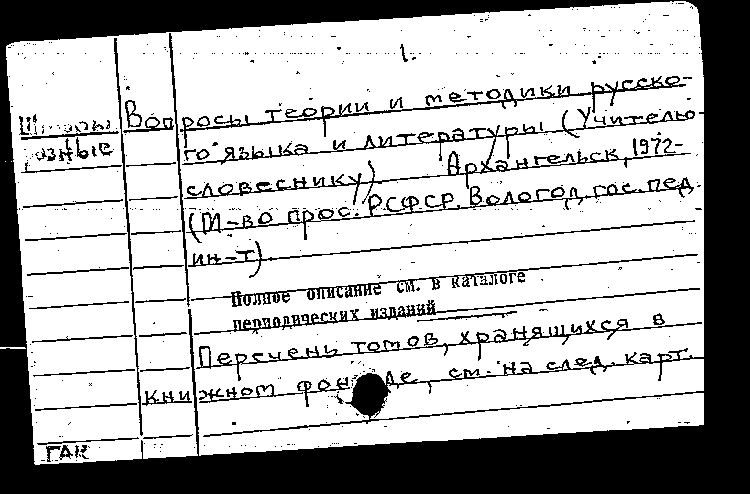 1.
Шифры Вопросы теории и методики русско-
разные го языка и литературы (Учителю-
словеснику) Архангельск, 1972-
(М-во прос. РСФСР. Вологод. гос. пед.
ин-т).
Полное описание см. в каталоге
периодических изданий
Перечень томов, хранящихся в
книжном фонде, см. на след. карт.
ГАК